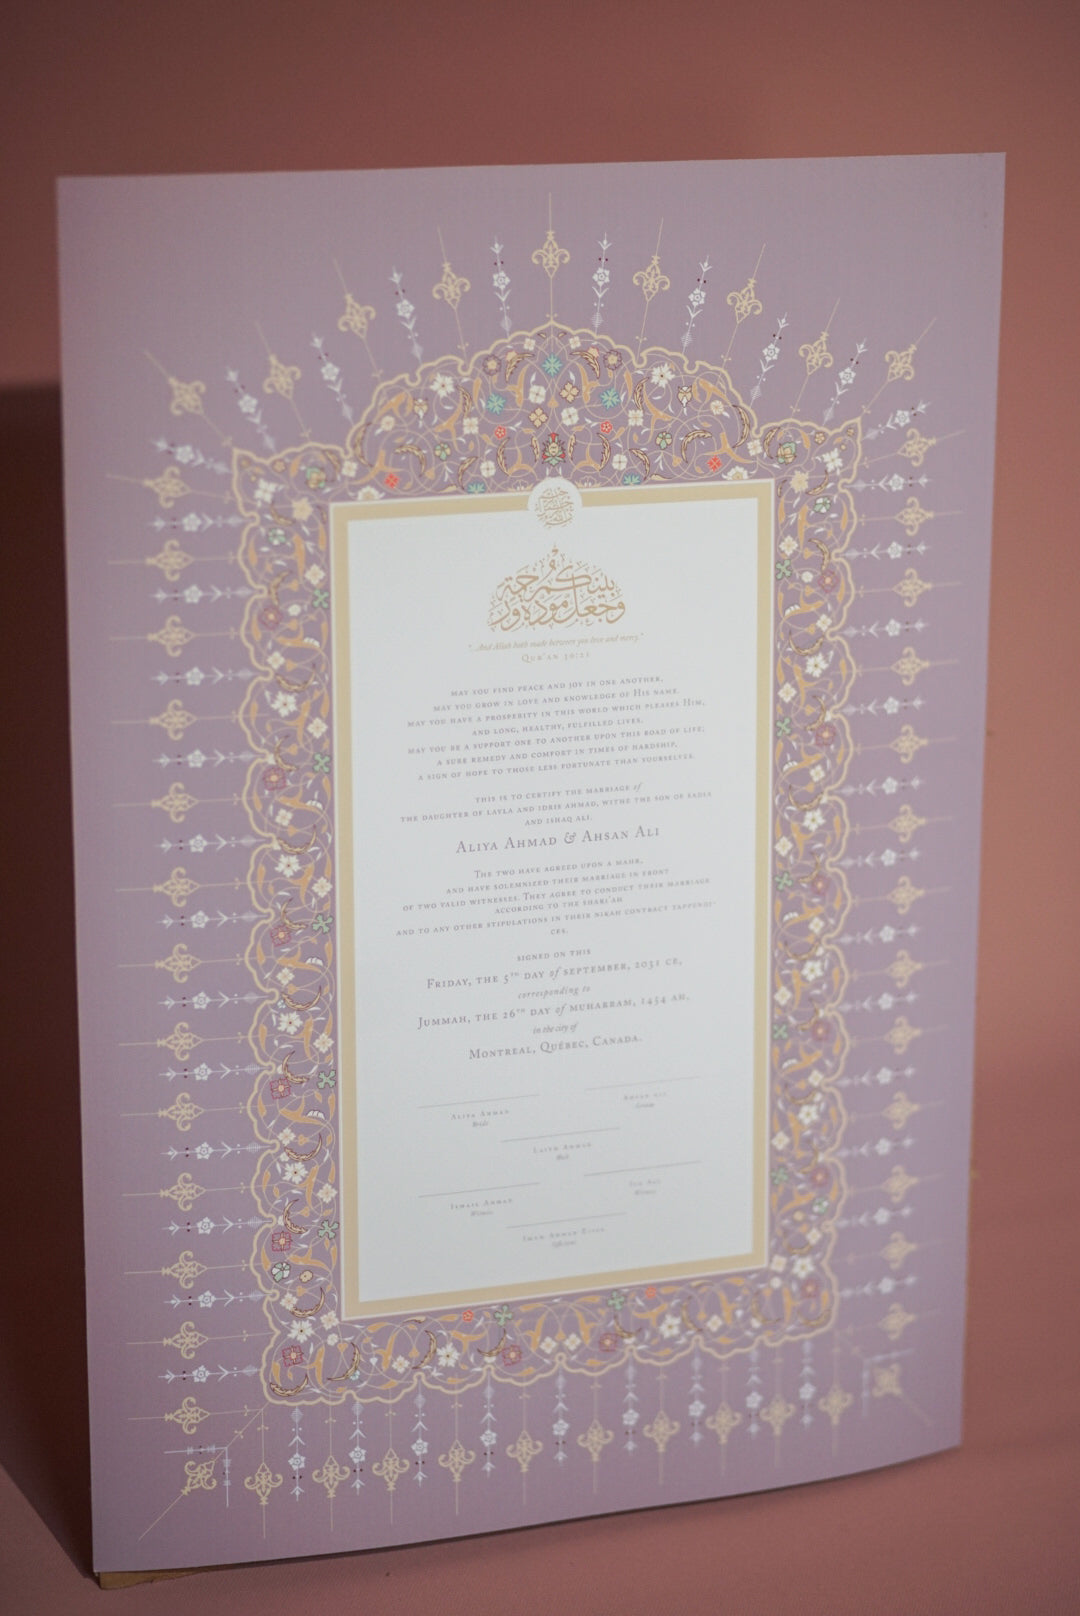 وجعل بينكم مودة ورحمة
"...And Allah hath made between you love and mercy."
Qur'an 30:21
may you find peace and joy in one another,
may you grow in love and knowledge of His name.
may you have a prosperity in this world which pleases Him,
and long, healthy, fulfilled lives.
may you be a support one to another upon this road of life;
a sure remedy and comfort in times of hardship,
a sign of hope to those less fortunate than yourselves.
this is to certify the marriage of
the daughter of Layla and Idris Ahmad, withe the son of Sadia
and Ishaq Ali.
Aliya Ahmad & Ahsan Ali
The two have agreed upon a mahr,
and have solemnized their marriage in front
of two valid witnesses. They agree to conduct their marriage
according to the shari'ah
and to any other stipulations in their nikah contract
ces.
signed on this
Friday, the 5th day of september, 2031 CE,
corresponding to
Jummah, the 26th day of muharram, 1454 AH,
in the city of
Montreal, Québec, Canada.
Ahsan Ali
Groom
Aliya Ahmad
Bride
Laith Ahmad
Wali
Witness
Ismail Ahmad
Witness
Officiant